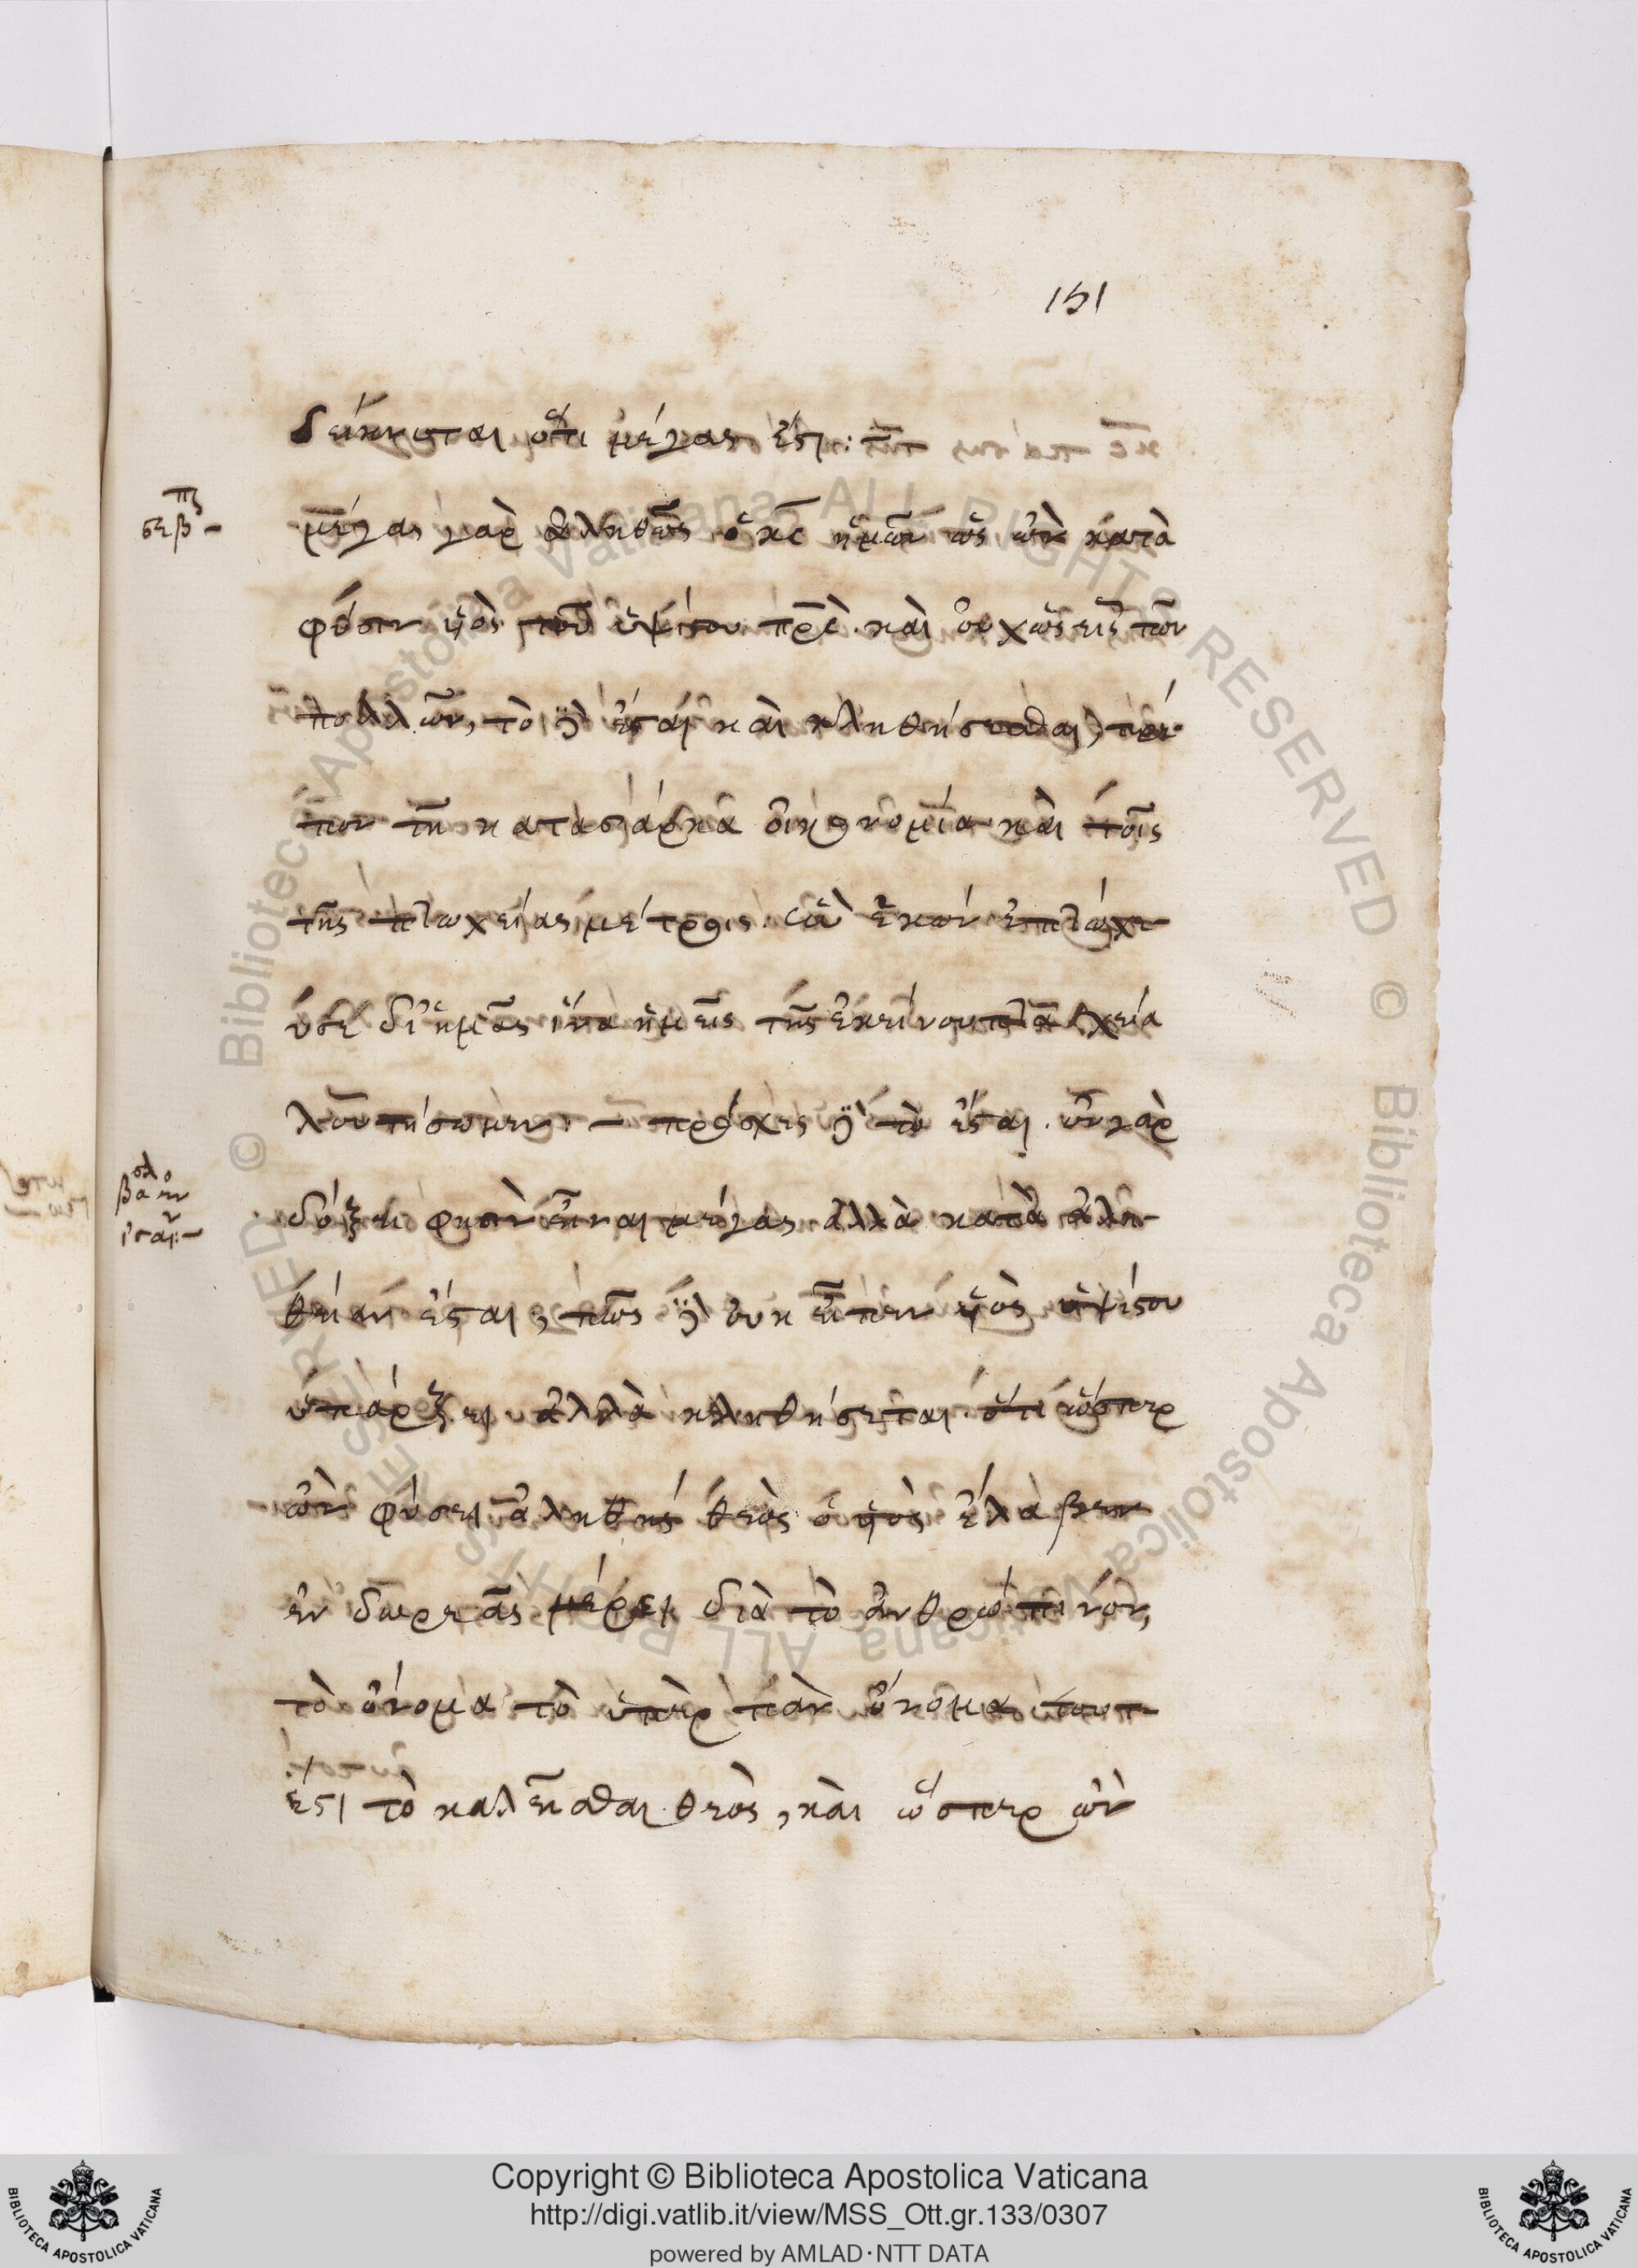 151
δείκνυται ὅτι μέγας ἐστι:
σεβ
μέγας γὰρ ἀληθῶς ὁ κς ἡμῶν ὡς ὢν κατὰ
φύσιν υἱὸς τοῦ ὑψίστου πρς. καὶ οὐχ ὡς εἷς τῶν
πολλῶν, τὸ δὲ ἔσται καὶ κληθήσεσθαι, πρέ
πον τῆ κατα σάρκα οἰκονομία καὶ τοῖς
τῆς πτωχείας μέτροις. ἑκὼν ἐπτώχε
υσε δι' ἡμᾶς ἵνα ἡμεῖς τῆς ἐκείνου πτωχεία
λουτήσωμεν. πρόσχες δὲ τὸ ἔσται. οὐ γὰρ
δόξη φησὶν εἶναι μέγας ἀλλὰ κατὰ ἀλη
θειαν ἔσται, πῶς δὲ οὐκ εἶπεν υἱὸς ὑψίστου
ὑπάρξει ἀλλὰ κληθήσεται. ὅτι ὥσπερ
ὢν φύσει ἀληθὴς θεὸς ὁ υἱὸς ἔλαβεν
ἐν δωρεᾶς μέρει διὰ τὸ ἀνθρώπινον,
τὸ ὄνομα τὸ ὑπὲρ πὰν ὄνομα τουτ
έστι τὸ καλεῖσθαι θεὸς, καὶ ὥσπερ ὢν
Copyright © Biblioteca Apostolica Vaticana
http://digi.vatlib.it/view/MSS_Ott.gr.133/0307
powered by AMLAD·NTT DATA
BIBLIOTECA APOSTOLICA VATICANA
BIBLIOTECA APOSTOLICA VATICANA
© Biblioteca Apostolica Vaticana ALL RIGHTS RESERVED © Biblioteca Apostolica Vaticana ALL RIGHTS RESERVED